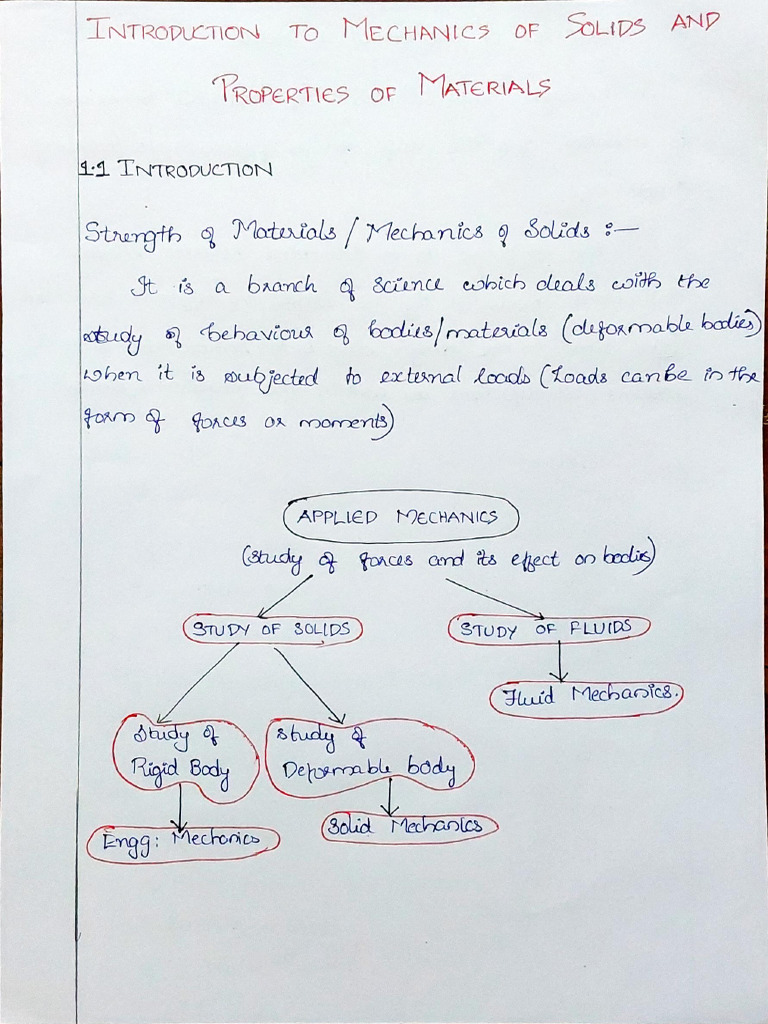 INTRODUCTION TO MECHANICS OF SOLIDS AND
PROPERTIES OF MATERIALS
1.1 INTRODUCTION
Strength of Materials / Mechanics of Solids :—
It is a branch of science which deals with the
study of behaviour of bodies/materials (deformable bodies)
when it is subjected to external loads (Loads canbe in the
form of forces or moments)
APPLIED MECHANICS
(study of forces and its effect on bodies)
STUDY OF SOLIDS
STUDY OF FLUIDS
Fluid Mechanics.
Study of
Rigid Body
study of
Deformable body
Engg: Mechanics
Solid Mechanics